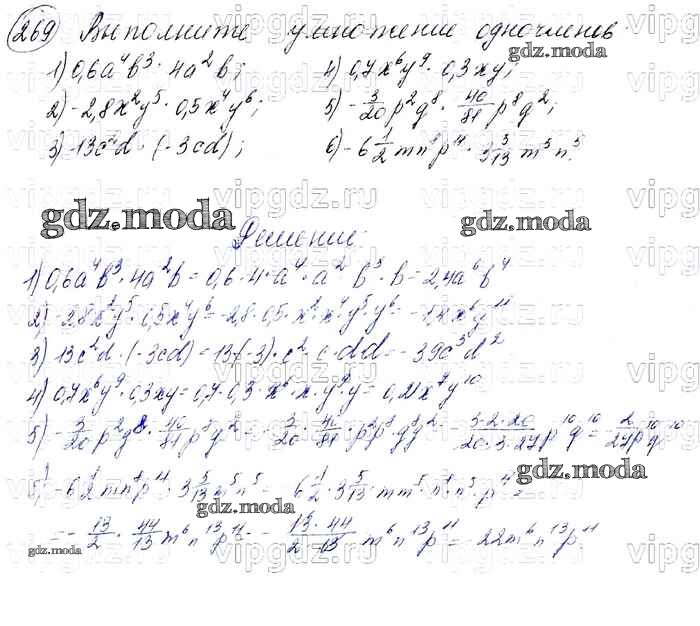 269 Выполните умножение одночленов.
1) 0,6a⁴b³ · 4a²b; 4) 0,7x⁶y⁹ · 0,3xy;
2) -2,8x²y⁵ · 0,5x⁴y⁶; 5) -3/20 p²q⁸ · 40/81 p⁸q²;
3) -13c²d · (-3cd); 6) -6 1/2 mn⁸p¹¹ · 3 5/13 m⁵n⁵.
gdz.moda
Решение:
1) 0,6a⁴b³ · 4a²b = 0,6 · 4 · a⁴ · a² · b³ · b = 2,4a⁶b⁴
2) -2,8x²y⁵ · 0,5x⁴y⁶ = -2,8 · 0,5 · x²x⁴ · y⁵ · y⁶ = -1,4x⁶y¹¹
3) 13c²d · (-3cd) = 13(-3) · c² · c · dd = -39c³d²
4) 0,7x⁶y⁹ · 0,3xy = 0,7 · 0,3 · x⁶ · x · y⁹y = 0,21x⁷y¹⁰
5) -3/20 p²q⁸ · 40/81 p⁸q² = -3/20 · 40/81 · p²p⁸q⁸q² = -3·2·20/20·3·27 p¹⁰q¹⁰ = 2/27 p¹⁰q¹⁰
-6 1/2 mn⁸p¹¹ · 3 5/13 m⁵n⁵ = -6 1/2 · 3 5/13 · mm⁵ · n⁸ · n⁵ · p¹¹ =
= -13/2 · 44/13 m⁶n¹³p¹¹ = -13·44/2·13 m⁶n¹³p¹¹ = -22m⁶n¹³p¹¹
gdz.moda
vipgdz.ru